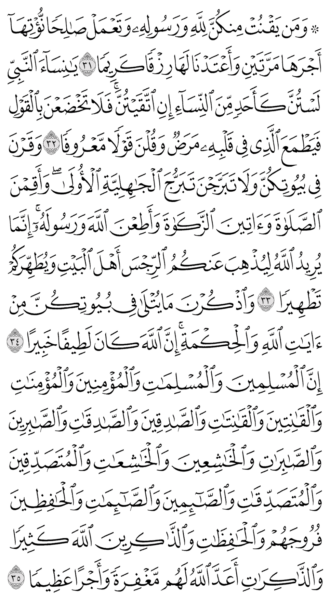 ۞ وَمَن يَقْنُتْ مِنكُنَّ لِلَّهِ وَرَسُولِهِۦ وَتَعْمَلْ صَٰلِحًا نُّؤْتِهَآ
أَجْرَهَا مَرَّتَيْنِ وَأَعْتَدْنَا لَهَا رِزْقًا كَرِيمًا ٣١ يَٰنِسَآءَ ٱلنَّبِيِّ
لَسْتُنَّ كَأَحَدٍ مِّنَ ٱلنِّسَآءِ إِنِ ٱتَّقَيْتُنَّۚ فَلَا تَخْضَعْنَ بِٱلْقَوْلِ
فَيَطْمَعَ ٱلَّذِي فِي قَلْبِهِۦ مَرَضٌ وَقُلْنَ قَوْلًا مَّعْرُوفًا ٣٢ وَقَرْنَ
فِي بُيُوتِكُنَّ وَلَا تَبَرَّجْنَ تَبَرُّجَ ٱلْجَٰهِلِيَّةِ ٱلْأُولَىٰۖ وَأَقِمْنَ
ٱلصَّلَوٰةَ وَءَاتِينَ ٱلزَّكَوٰةَ وَأَطِعْنَ ٱللَّهَ وَرَسُولَهُۥٓۚ إِنَّمَا
يُرِيدُ ٱللَّهُ لِيُذْهِبَ عَنكُمُ ٱلرِّجْسَ أَهْلَ ٱلْبَيْتِ وَيُطَهِّرَكُمْ
تَطْهِيرًا ٣٣ وَٱذْكُرْنَ مَا يُتْلَىٰ فِي بُيُوتِكُنَّ مِنْ
ءَايَٰتِ ٱللَّهِ وَٱلْحِكْمَةِۚ إِنَّ ٱللَّهَ كَانَ لَطِيفًا خَبِيرًا ٣٤
إِنَّ ٱلْمُسْلِمِينَ وَٱلْمُسْلِمَٰتِ وَٱلْمُؤْمِنِينَ وَٱلْمُؤْمِنَٰتِ
وَٱلْقَٰنِتِينَ وَٱلْقَٰنِتَٰتِ وَٱلصَّٰدِقِينَ وَٱلصَّٰدِقَٰتِ وَٱلصَّٰبِرِينَ
وَٱلصَّٰبِرَٰتِ وَٱلْخَٰشِعِينَ وَٱلْخَٰشِعَٰتِ وَٱلْمُتَصَدِّقِينَ
وَٱلْمُتَصَدِّقَٰتِ وَٱلصَّٰٓئِمِينَ وَٱلصَّٰٓئِمَٰتِ وَٱلْحَٰفِظِينَ
فُرُوجَهُمْ وَٱلْحَٰفِظَٰتِ وَٱلذَّٰكِرِينَ ٱللَّهَ كَثِيرًا
وَٱلذَّٰكِرَٰتِ أَعَدَّ ٱللَّهُ لَهُم مَّغْفِرَةً وَأَجْرًا عَظِيمًا ٣٥